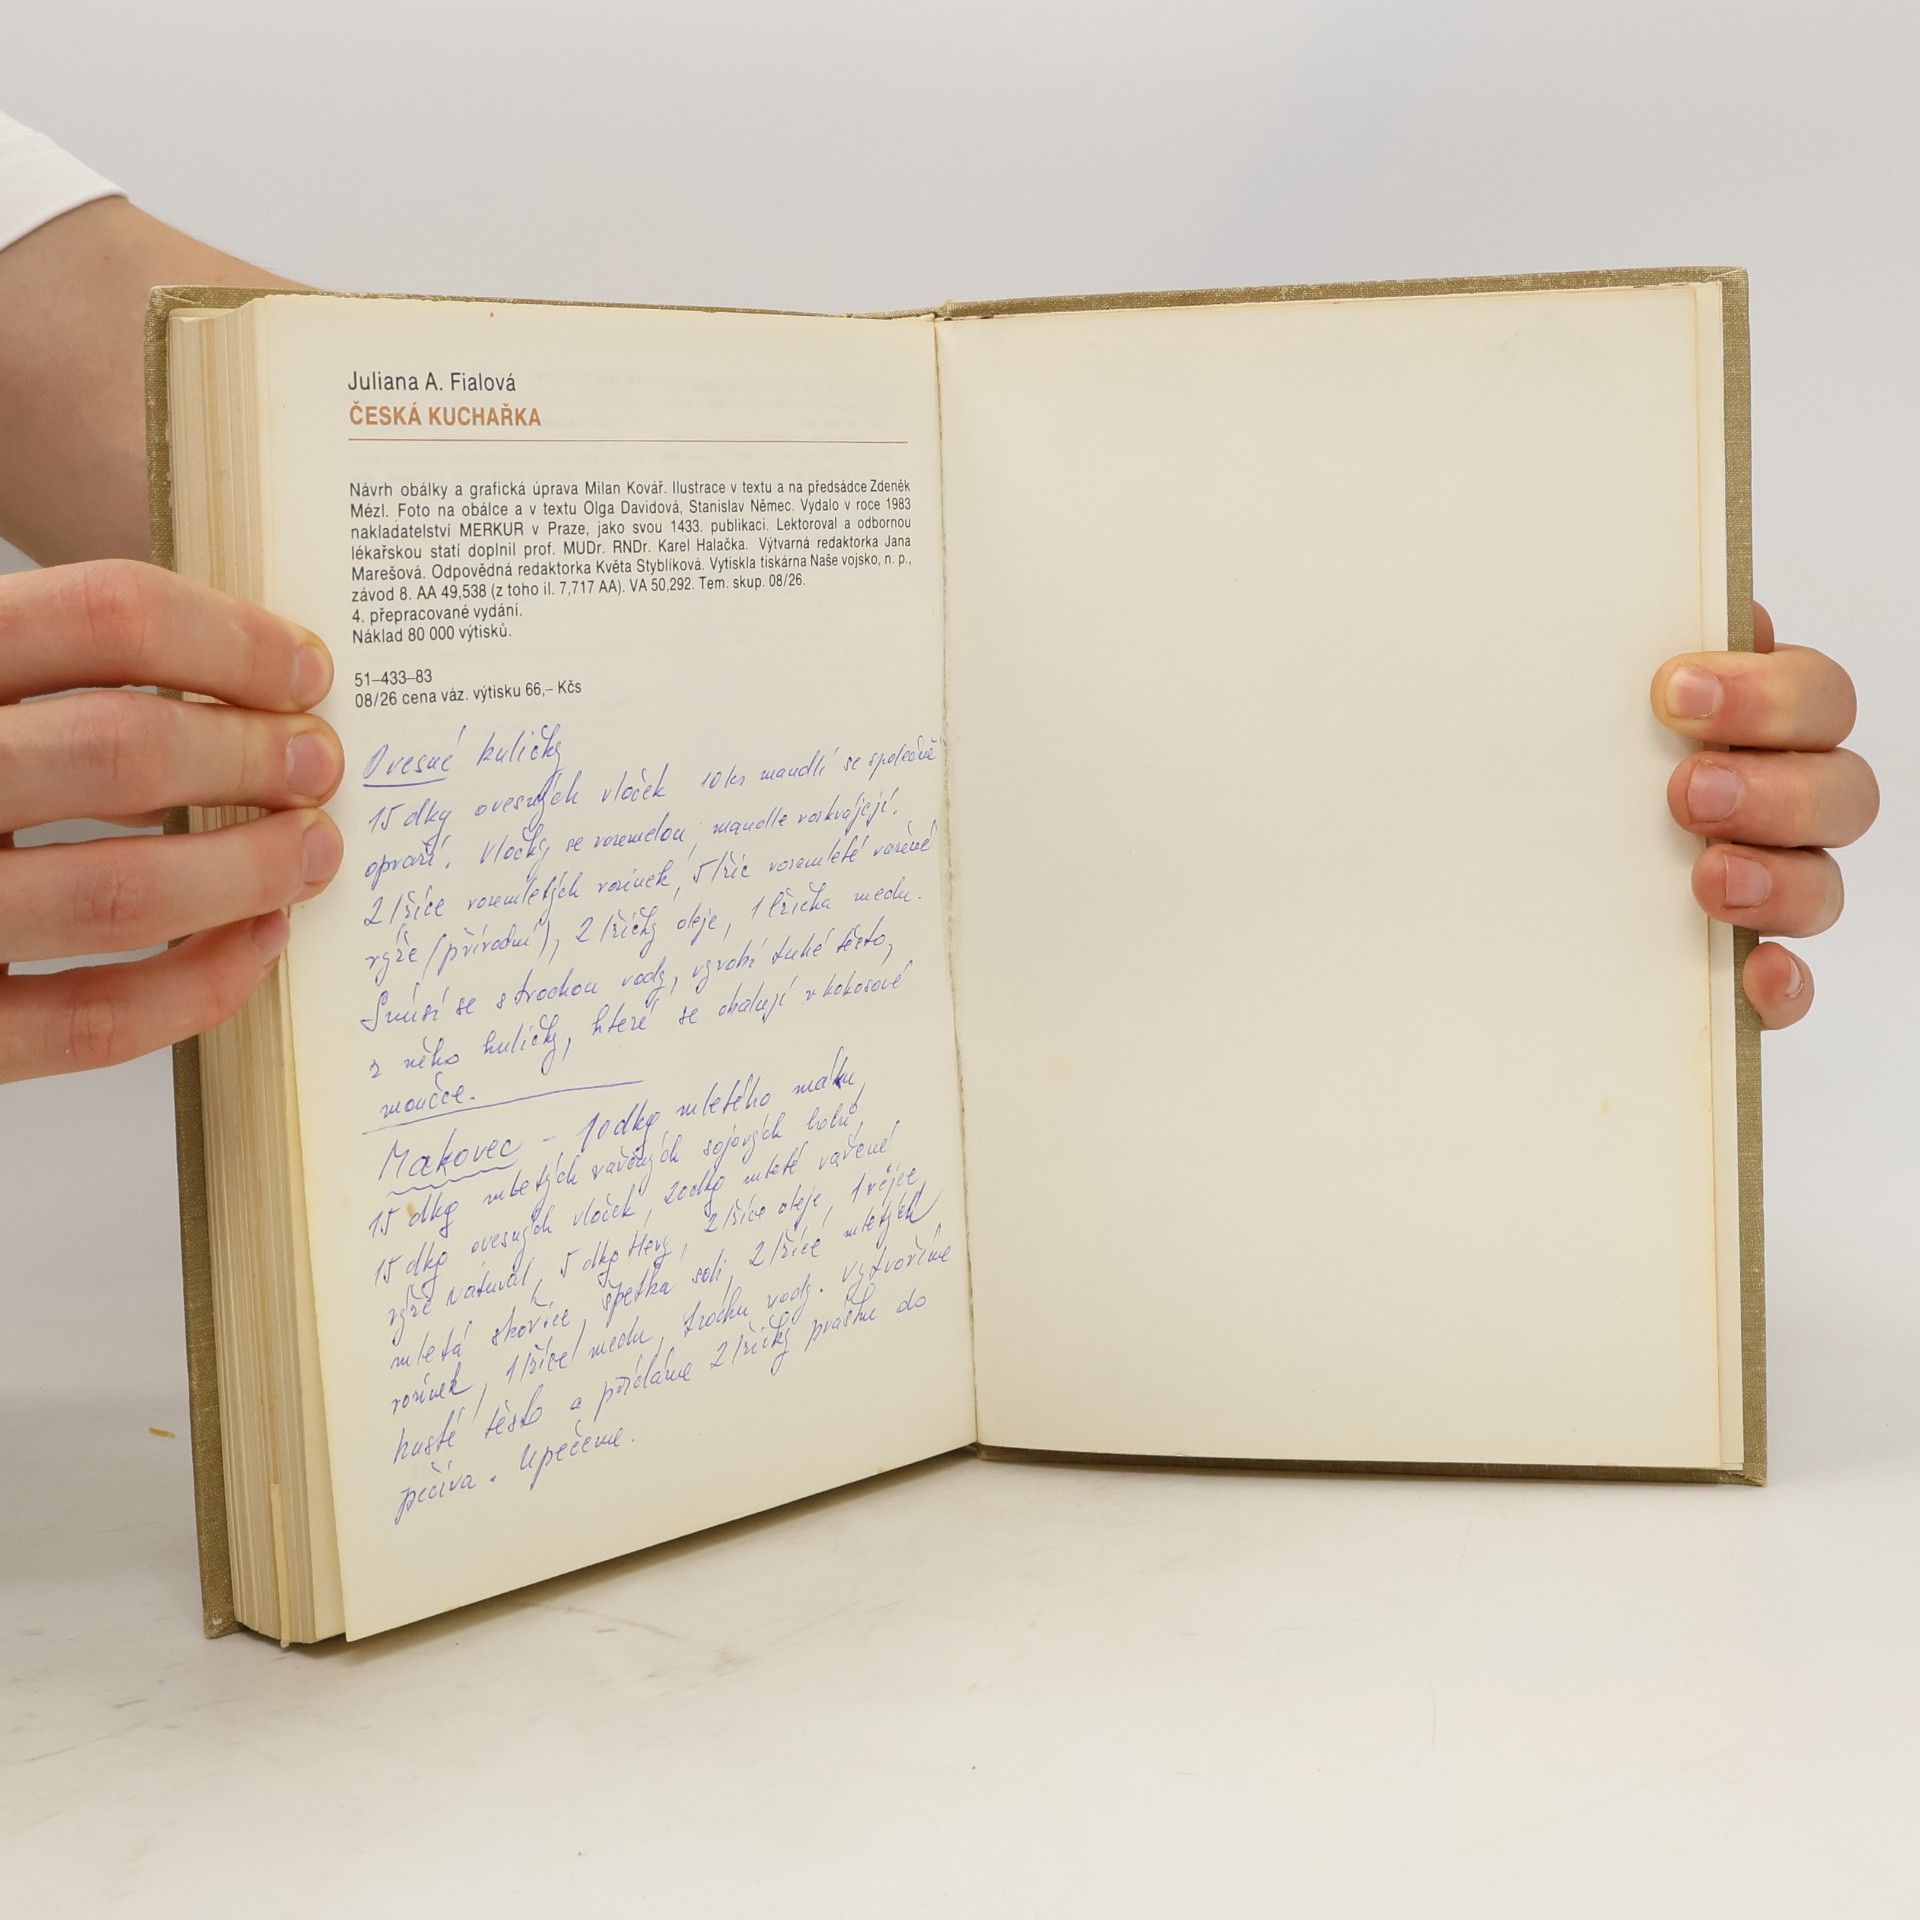 Juliana A. Fialová
ČESKÁ KUCHAŘKA
Návrh obálky a grafická úprava Milan Kovář. Ilustrace v textu a na předsádce Zdeněk
Mézl. Foto na obálce a v textu Olga Davidová, Stanislav Němec. Vydalo v roce 1983
nakladatelství MERKUR v Praze, jako svou 1433. publikaci. Lektoroval a odbornou
lékařskou statí doplnil prof. MUDr. RNDr. Karel Halačka. Výtvarná redaktorka Jana
Marešová. Odpovědná redaktorka Květa Styblíková. Vytiskla tiskárna Naše vojsko, n. p.,
závod 8. AA 49,538 (z toho il. 7,717 AA). VA 50,292. Tem. skup. 08/26.
4. přepracované vydání.
Náklad 80 000 výtisků.
51–433–83
08/26 cena váz. výtisku 66,– Kčs
Ovesné kuličky
15 dkg ovesných vloček 10 ks mandlí se společně
opraží. Vločky se rozemelou, mandle rozkrájejí.
2 lžíce rozemletých rozinek, 5 lžic rozemleté vařené
rýže (přírodní), 2 lžičky oleje, 1 lžička medu.
Smísí se s trochou vody, vyrobí tuhé těsto,
z něho kuličky, které se obalují v kokosové
moučce.
Makovec - 10 dkg mletého máku,
15 dkg mletých vařených sojových bobů
15 dkg ovesných vloček, 20 dkg mleté vařené
rýže natural, 5 dkg Hery, 2 lžíce oleje, 1 vejce,
mletá skořice, špetka soli, 2 lžíce mletých
rozinek, 1 lžíce medu, trochu vody. Vytvoříme
husté těsto a přidáme 2 lžičky prášku do
pečiva. Upečeme.